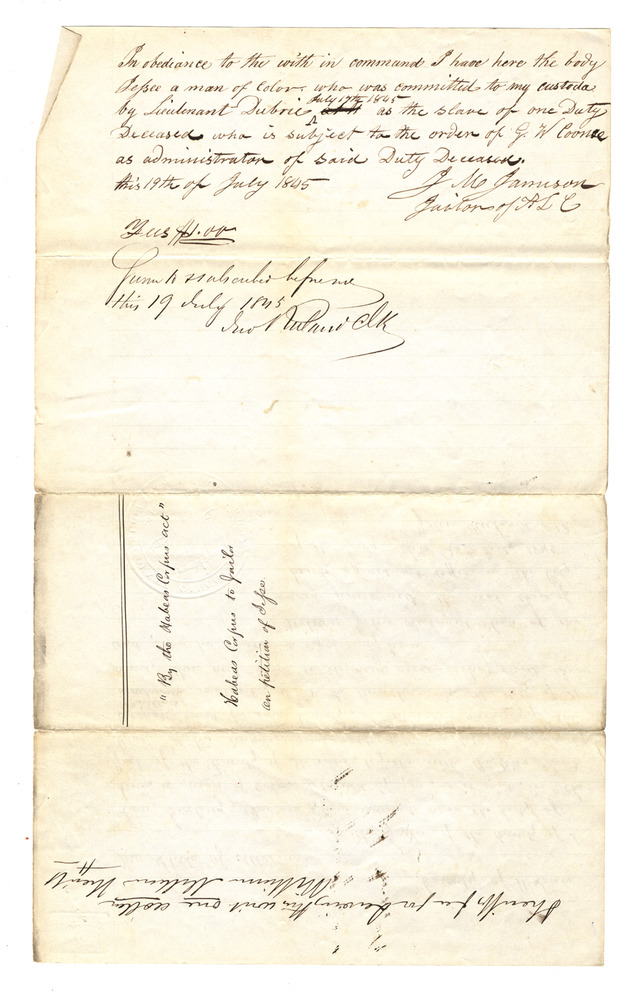 In obediance to the with in command I have here the body
Jessee a man of Color. who was committed to my custoda
by Lieutenant Dubrie July 17th 1845 as the slave of one Duty
Deceased who is subject to the order of G. W Coonce
as administrator of said Duty Deceased.
this 19th of July 1845
J M Jamison
Jailor of St L C
Fees $1.00
Sworn to & subscribed before me
this 19 July 1845
Jno Ruland Clk
"By the Habeas Corpus act"
Habeas Corpus to Jailor
on petition of Jesse.
Sheriffs fee for serving this writ one dollar
William Milburn Sheriff